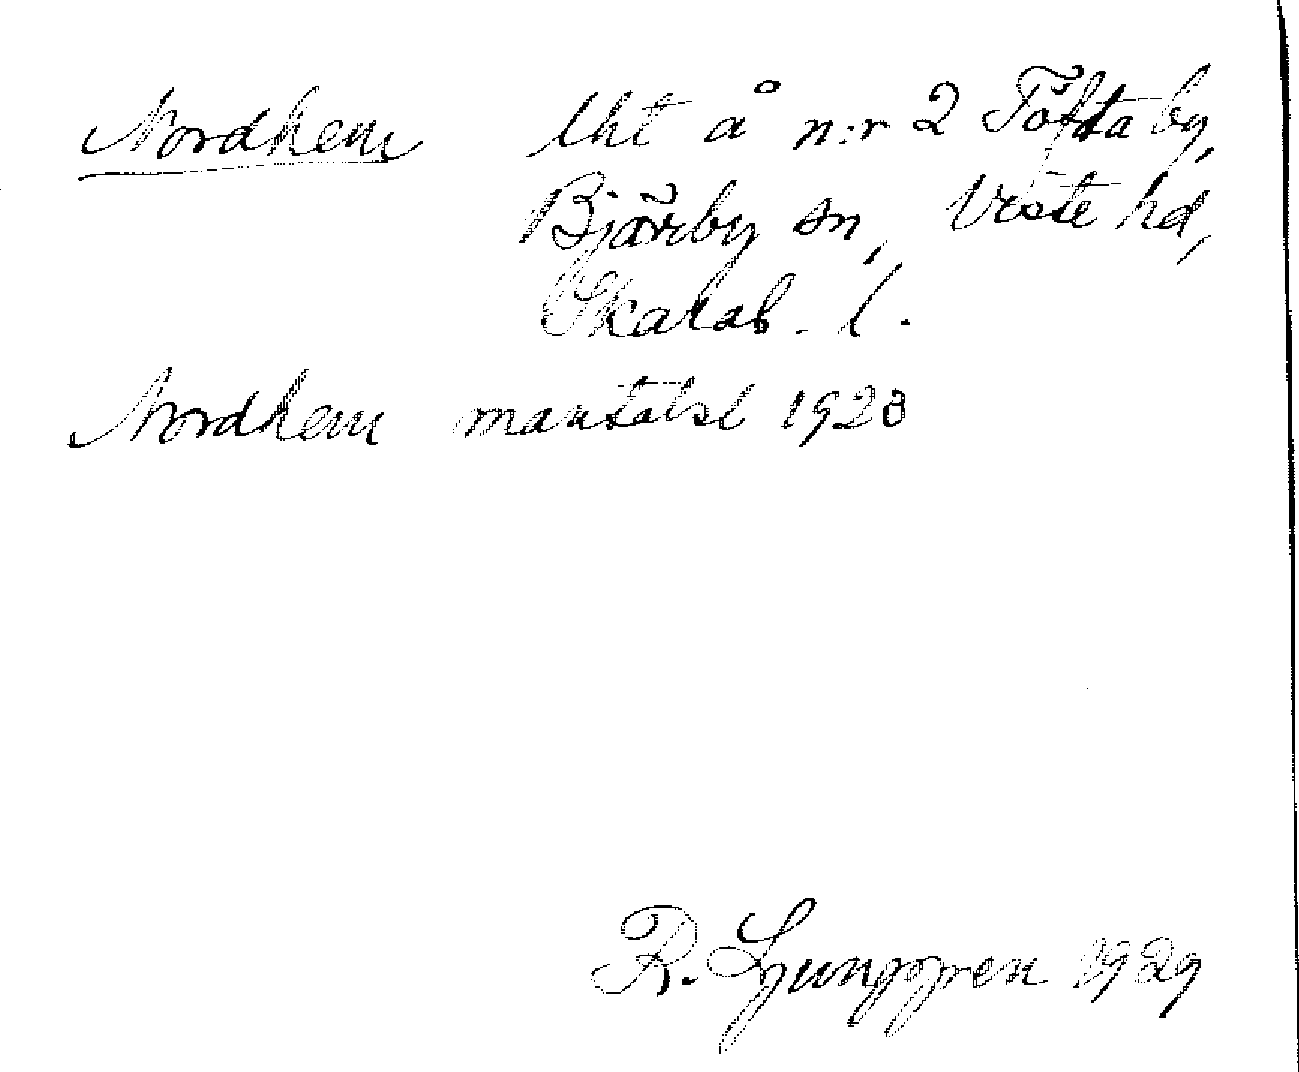 Nordhem lht å n:r 2 Töfta by,
Bjärby sn, Viste hd,
Skarab. l.
Nordhem mantalsl 1923
R. Ljunggren 1929